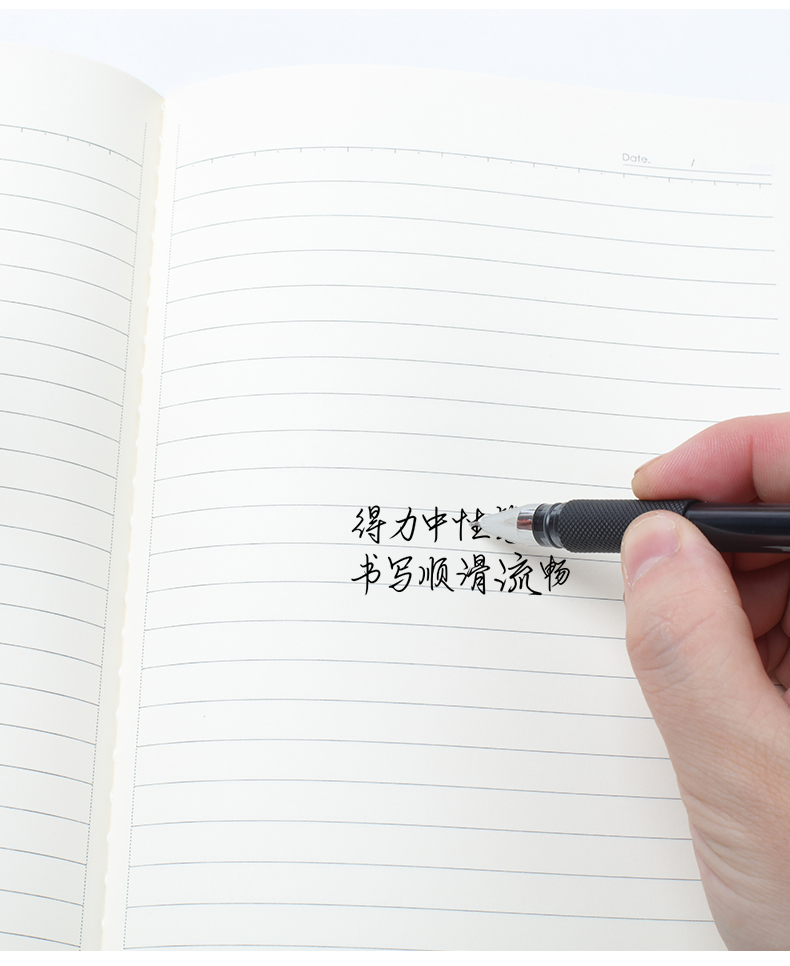 Date. /
得力中性
书写顺滑流畅